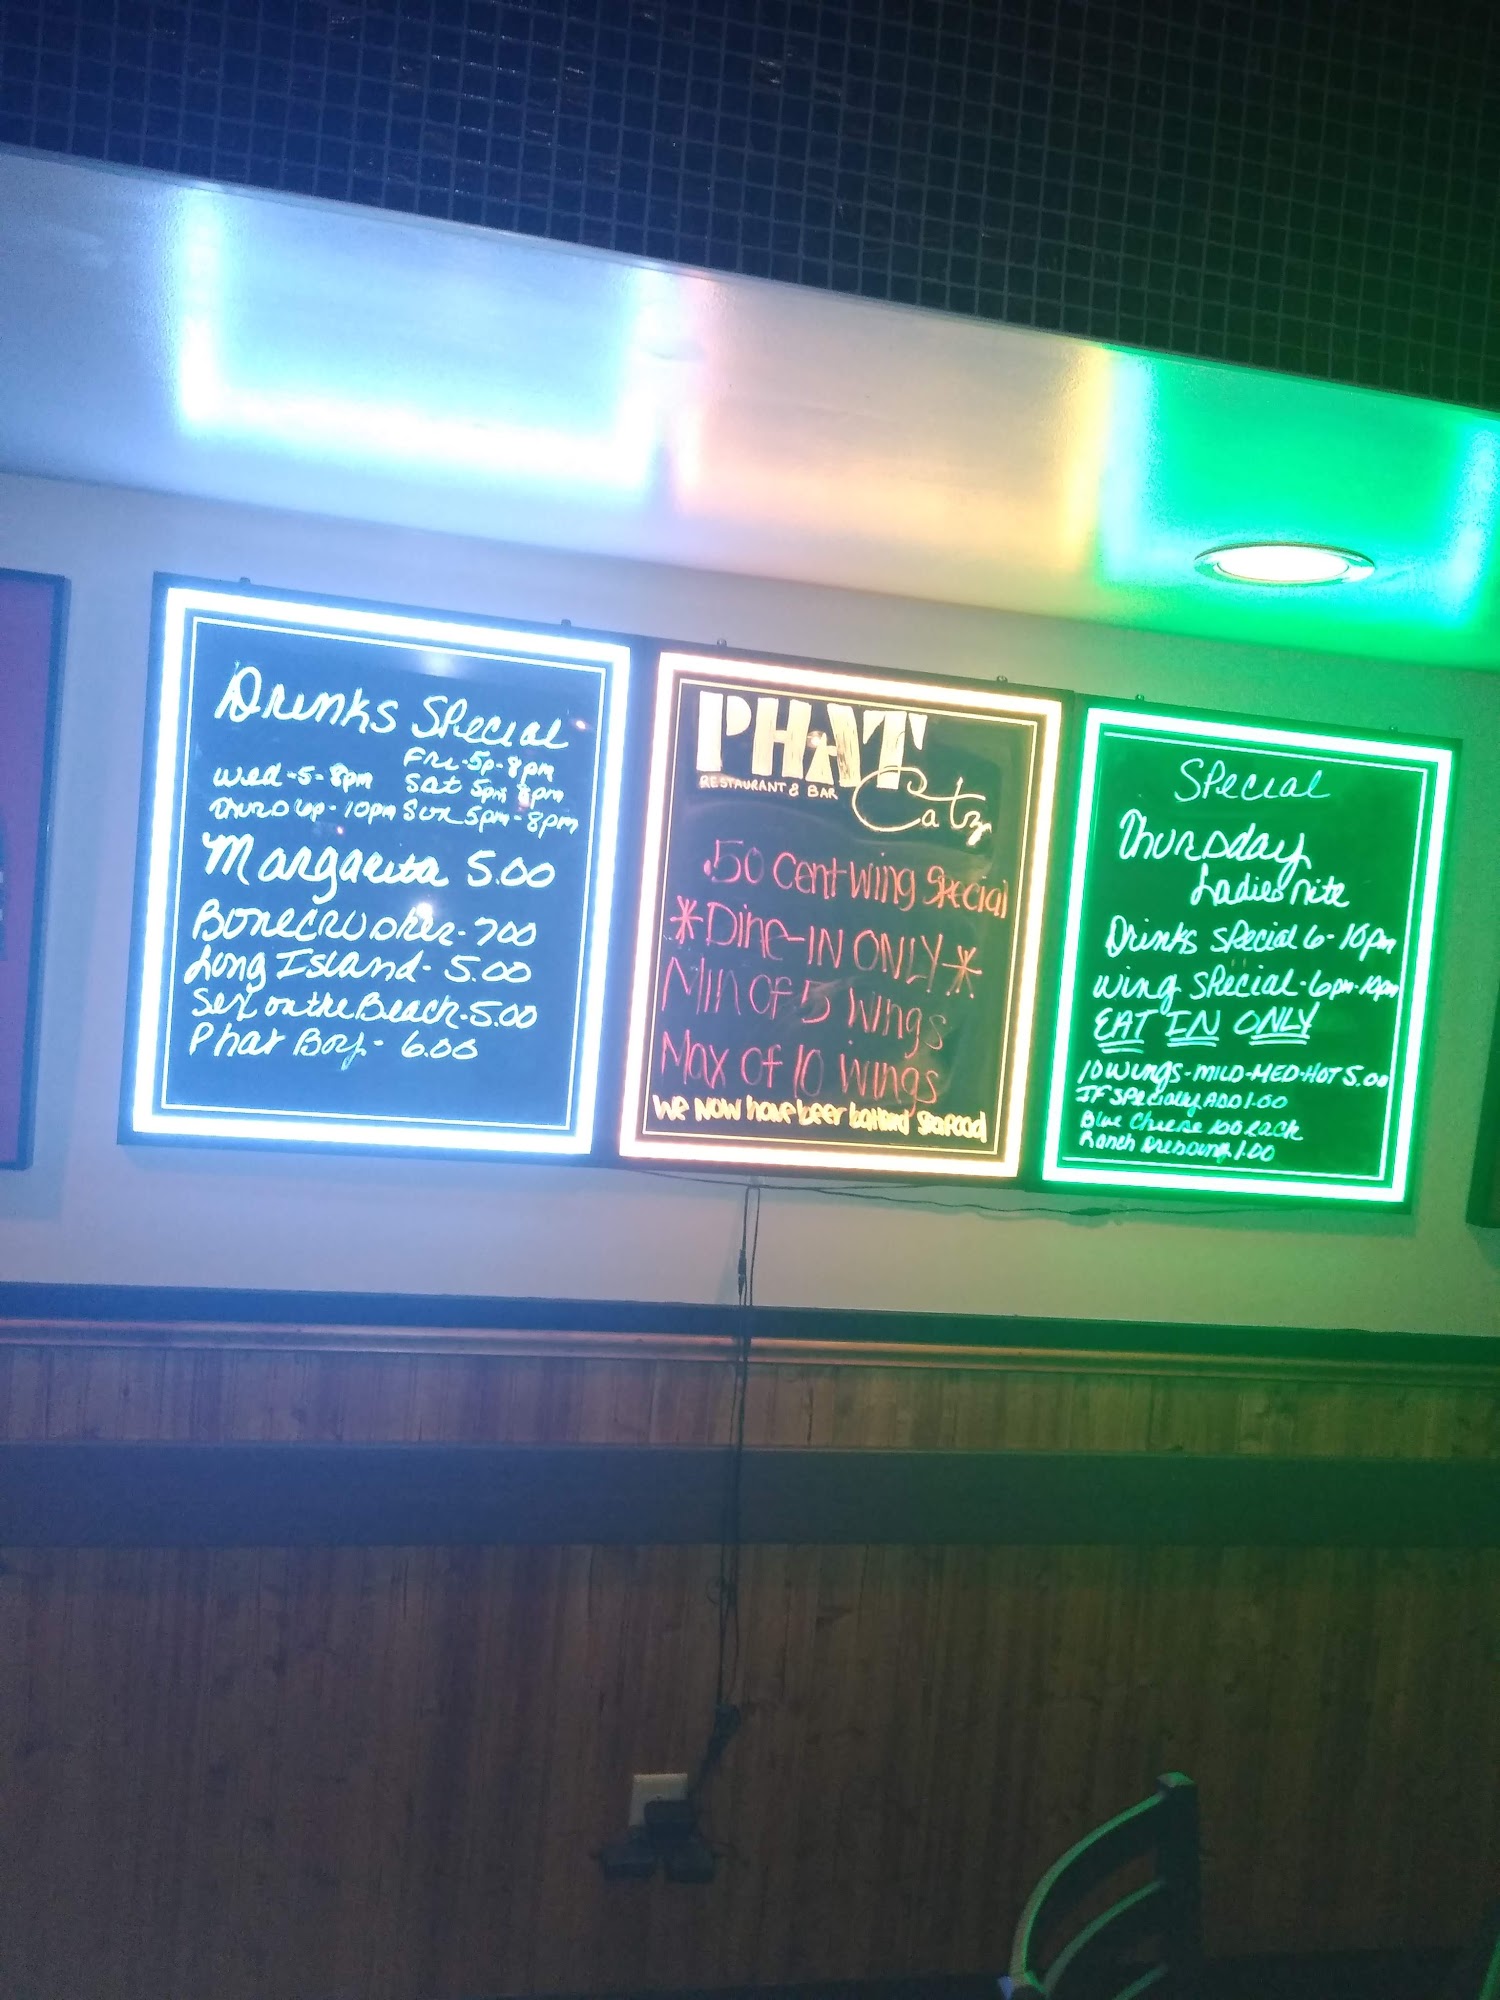 Drinks Special
Fri-5p-8pm
Wed-5-8pm Sat 5pm 8pm
Thurs 6p-10pm Sun 5pm-8pm
Margarita 5.00
Bonecrusher-700
Long Island-5.00
Sex on the Beach-5.00
Phat Boy-6.00
PHAT
RESTAURANT & BAR
Catz
.50 Cent wing Special
*Dine-IN ONLY*
Min of 5 Wings
Max of 10 wings
We Now have beer batterd Seafood
Special
Thursday
Ladies nite
Drinks special 6-10pm
Wing Special-6pm-10pm
EAT IN ONLY
10 wings-MILD-MED-HOT 5.00
IF specialty ADD 1.00
Blue Cheese 100 each
Ranch Dressing 1.00